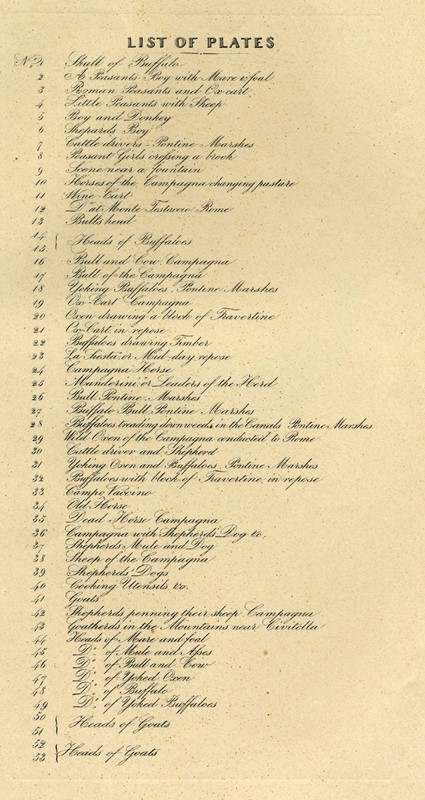 LIST OF PLATES
No. 1 Skull of Buffalo
2 A Peasants Boy with Mare & foal
3 Roman Peasants and Ox cart
4 Little Peasants with Sheep
5 Boy and Donkey
6 Sheperds Boy
7 Cattle drivers - Pontine Marshes
8 Peasant Girls crossing a brook
9 Scene near a fountain
10 Horses of the Campagna changing pasture
11 Wine Cart
12 Do. at Monte Testaccio Rome
13 Bulls head
14
15 Heads of Buffaloes
16 Bull and Cow Campagna
17 Bull of the Campagna
18 Yoking Buffaloes Pontine Marshes
19 Ox Cart Campagna
20 Oxen drawing a block of Travertine
21 Ox Cart in repose
22 Buffaloes drawing Timber
23 La Siesta or Mid-day repose
24 Campagna Horse
25 Manderini or Leaders of the Herd
26 Bull Pontine Marshes
27 Buffalo Bull Pontine Marshes
28 Buffaloes treading down weeds in the Canals Pontine Marshes
29 Wild Oxen of the Campagna conducted to Rome
30 Cattle driver and Shepherd
31 Yoking Oxen and Buffaloes Pontine Marshes
32 Buffaloes with block of Travertine in repose
33 Campo Vaccino
34 Old Horse
35 Dead Horse Campagna
36 Campagna with Shepherds Dog &c.
37 Shepherds Mule and Dog
38 Sheep of the Campagna
39 Shepherds Dogs
40 Cooking Utensils &c.
41 Goats
42 Shepherds penning their sheep Campagna
43 Goatherds in the Mountains near Civitella
44 Heads of Mare and foal
45 Do. of Mule and Asses
46 Do. of Bull and Cow
47 Do. of Yoked Oxen
48 Do. of Buffalo
49 Do. of Yoked Buffaloes
50
51 Heads of Goats
52
53 Heads of Goats